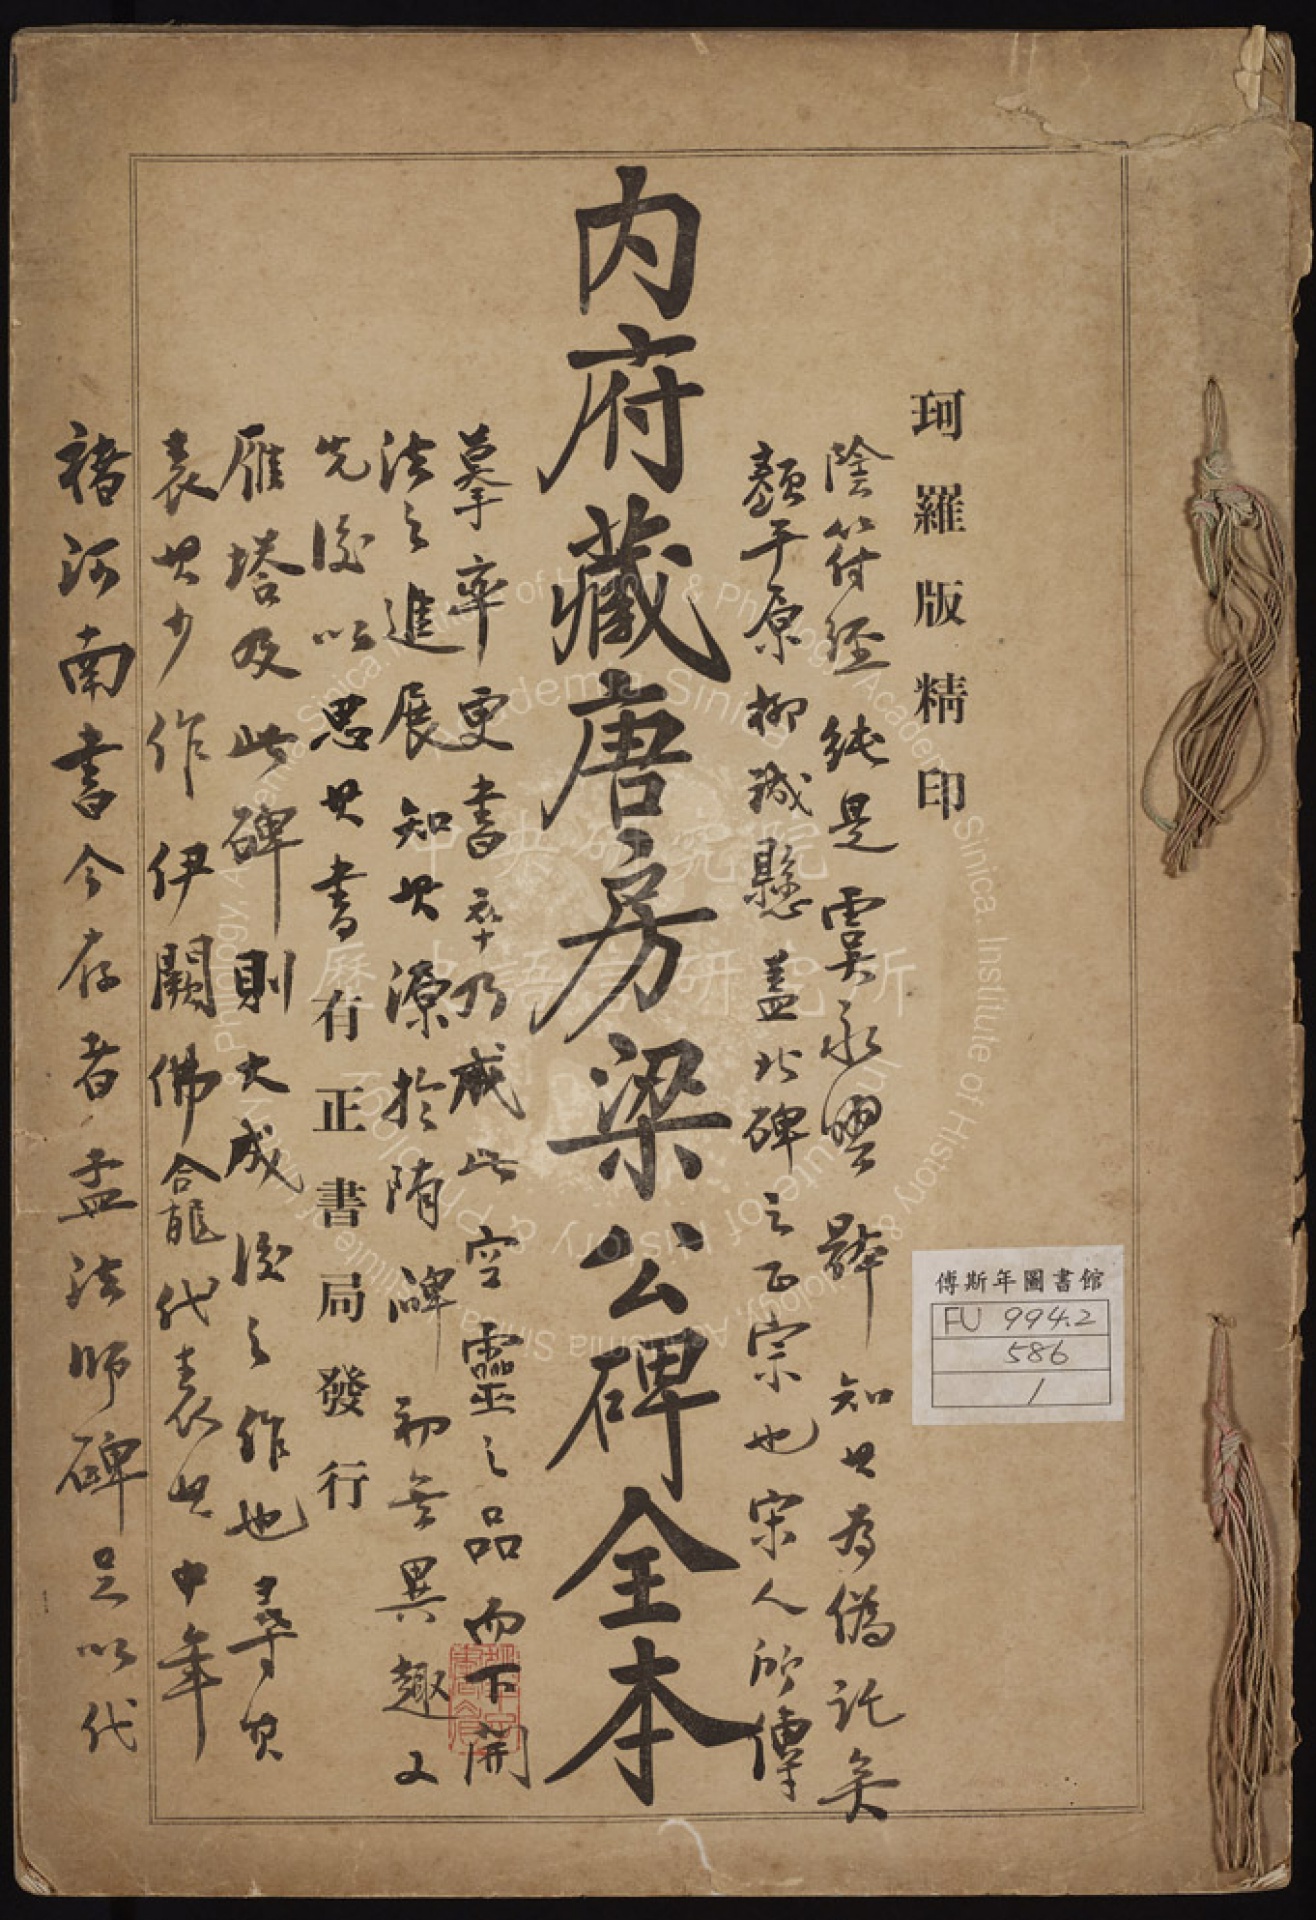 珂羅版精印
内府藏唐房梁公碑全本
有正書局發行
褚河南書今存者孟法師碑足以代
表其少作伊闕佛龕代表其中年
雁塔及此碑則大成後之作也尋其
先後以思其書
法之進展知其源於隋碑初無異趣又
摹率更書卒乃成此空靈之品而下開
顏平原柳誠懸蓋北碑之正宗也宋人所傳
陰符經純是虞永興體知其為偽託矣
傅斯年圖書館
FU 994.2
586
1
中央研究院
歷史語言研究所
Institute of History & Philology, Academia Sinica.